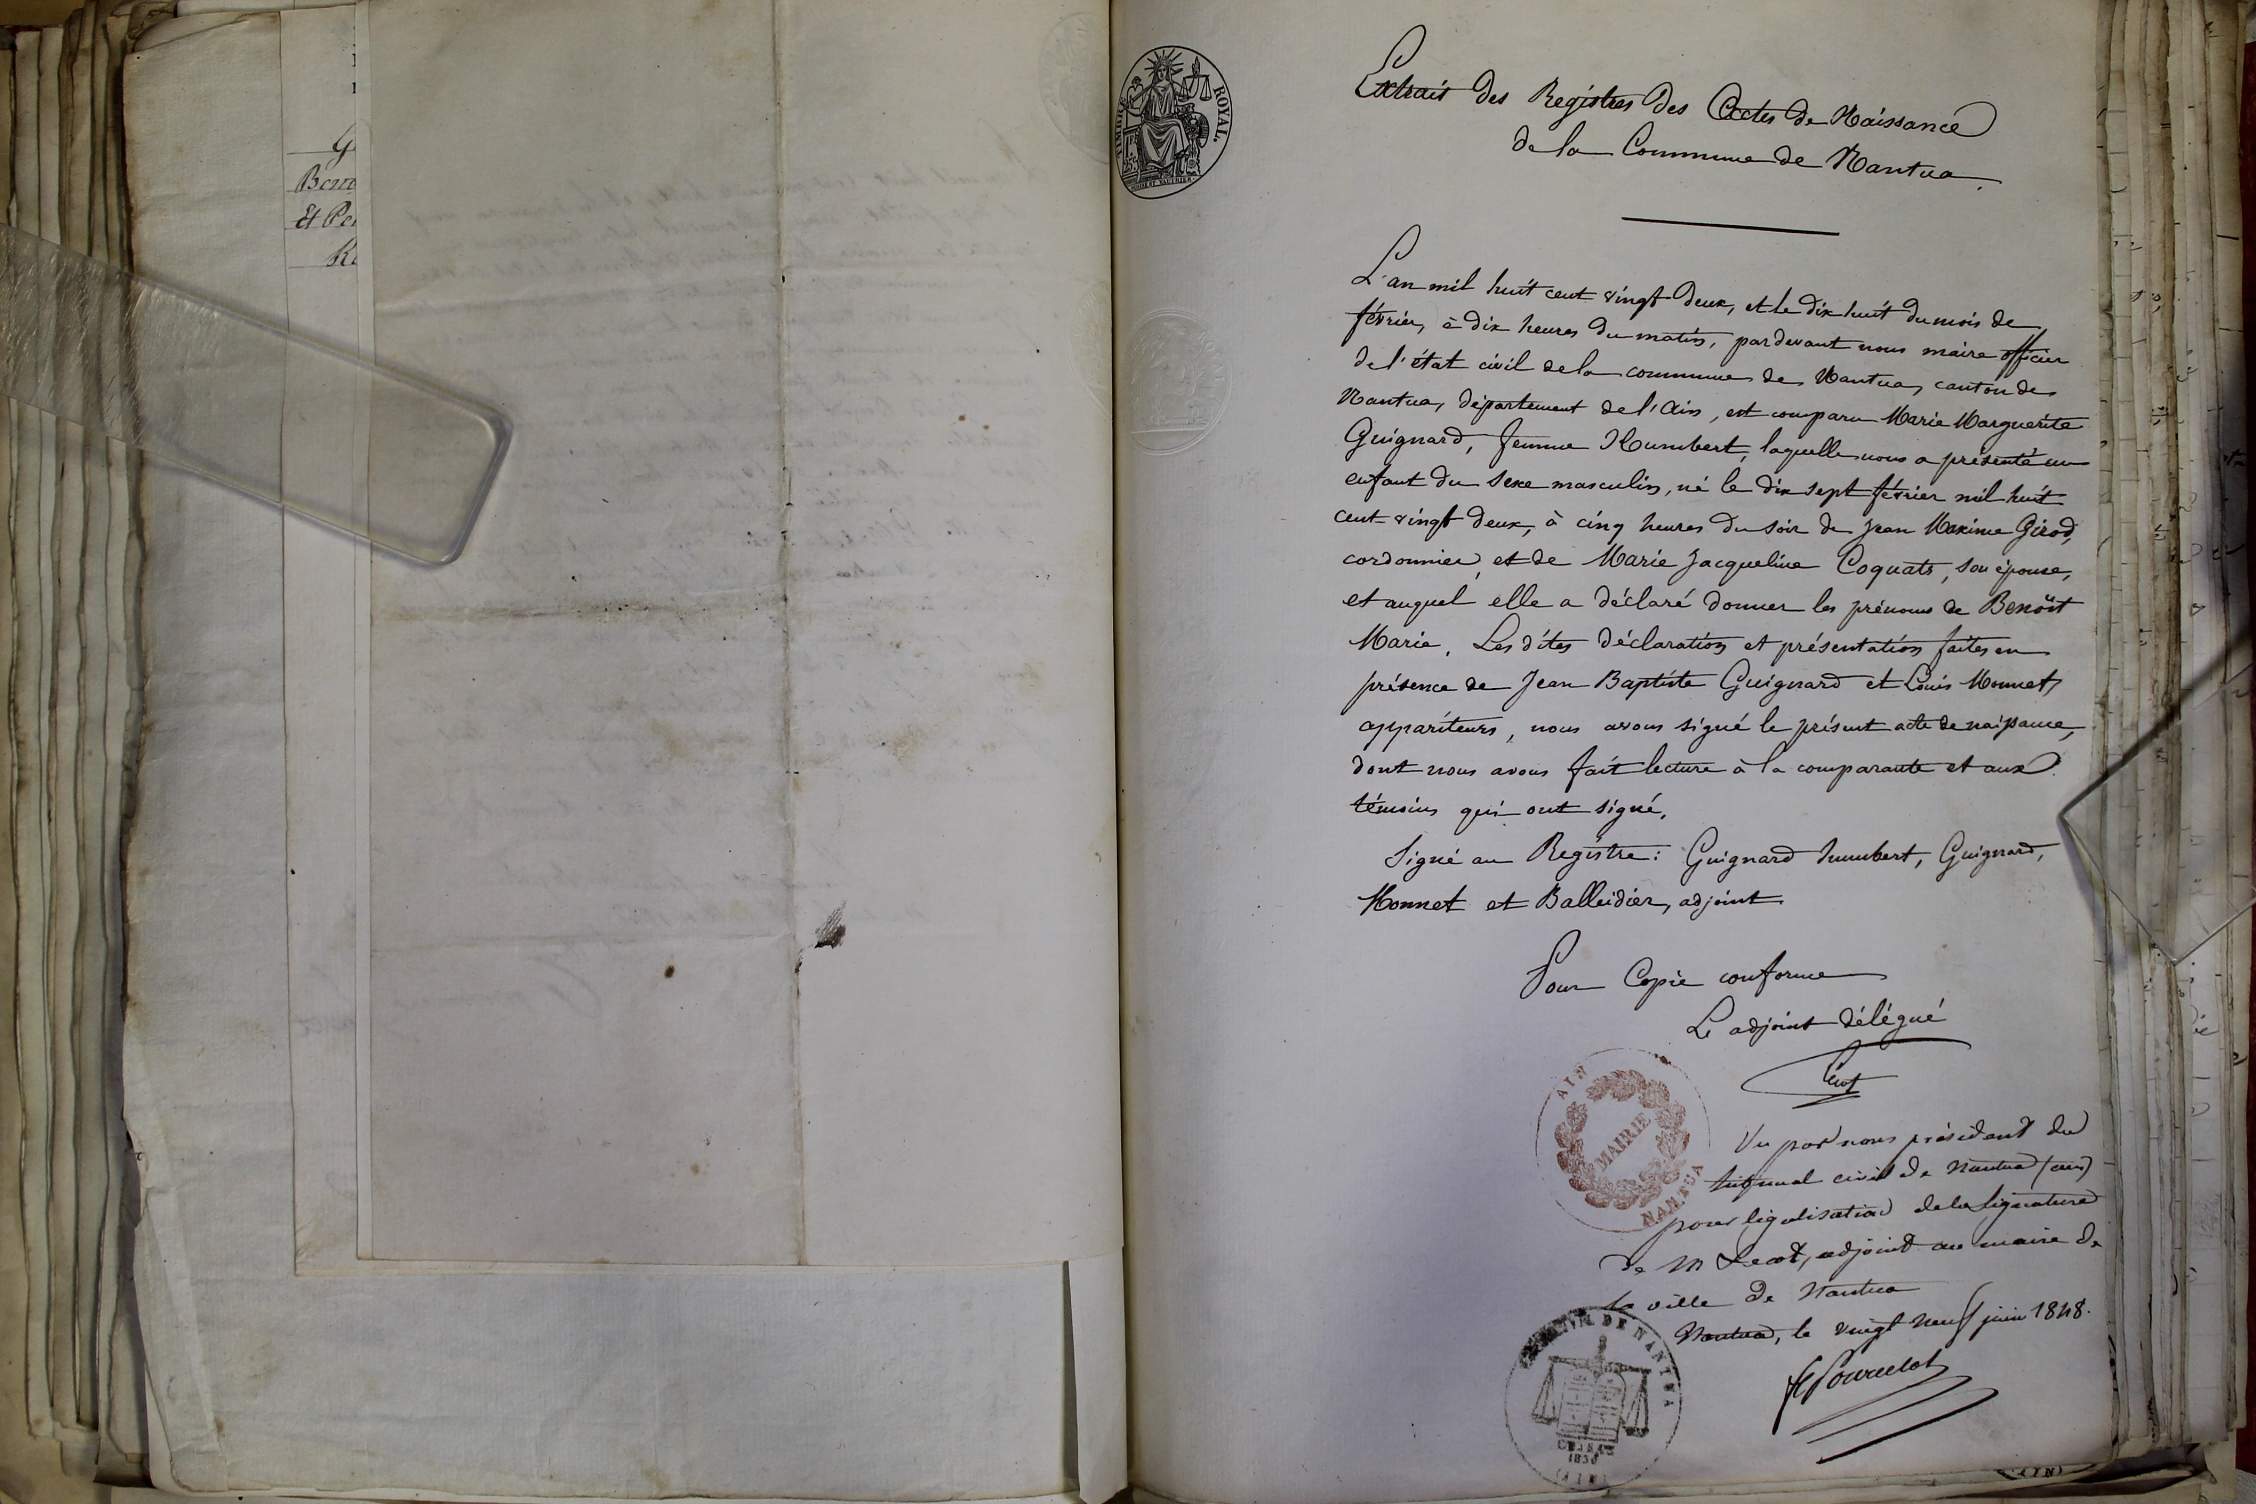 Bern
Et Pe
TIMBRE ROYAL
Extrait des Registres des Actes de Naissance
de la Commune de Nantua.
L'an mil huit cent vingt deux, et le dix huit du mois de
février, à dix heures du matin, pardevant nous maire officier
de l'état civil de la commune de Nantua, canton de
Nantua, département de l'Ain, est comparu Marie Marguerite
Guignard, femme Humbert, laquelle nous a présenté un
enfant du sexe masculin, né le dix sept février mil huit
cent vingt deux, à cinq heures du soir de Jean Maxime Girod,
cordonnier, et de Marie Jacqueline Coquats, son épouse,
et auquel elle a déclaré donner les prénoms de Benoît
Marie. Les dites déclaration et présentation faites en
présence de Jean Baptiste Guignard et Louis Monnet,
appariteurs, nous avons signé le présent acte de naissance,
dont nous avons fait lecture à la comparante et aux
témoins qui ont signé.
Signé au Registre : Guignard humbert, Guignard,
Monnet et Balleidier, adjoint
Pour Copie conforme
Le adjoint délégué
AIN
MAIRIE
NANTUA
Vu par nous président du
tribunal civil de Nantua (ain)
pour légalisation de la signature
de M Lecot, adjoint au maire de
la ville de Nantua
Nantua, le vingt neuf juin 1848.
DE NANTUA
1830
(AIN)
(AIN)